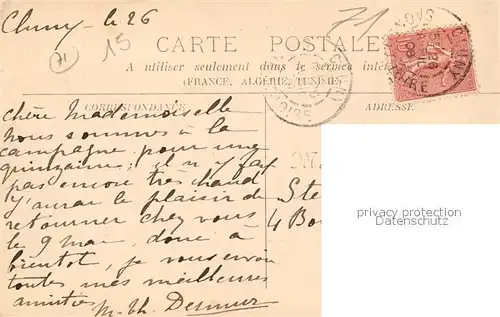 Cluny - le 26
71
15
71
CARTE POSTALE
A utiliser seulement dans le service inté
(FRANCE, ALGÉRIE, TUNISIE)
CORRESPONDANCE
ADRESSE
CLUNY
LOIRE
CLUNY
LOIRE
chère Mademoiselle
nous sommes à la
campagne pour une
quinzaine; il n'y fait
pas encore très chaud
J'aurai le plaisir de
retourner chez vous
le 9 mai, donc à
bientôt, je vous envoie
toutes mes meilleures
amitiés
M. Th.
Ste
4 Bo
privacy protection
Datenschutz